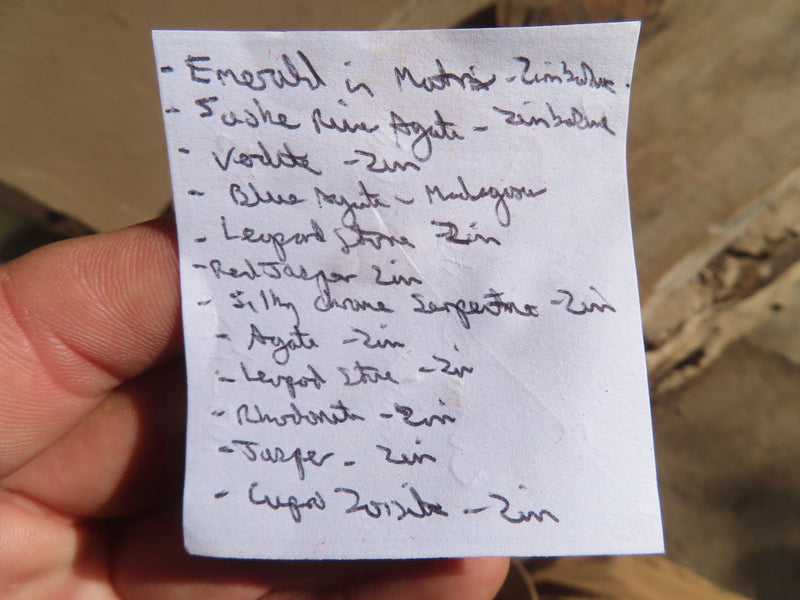 - Emerald in Matrix - Zimbabwe.
- Sashe River Agate - Zimbabwe
- Verdite - Zim
- Blue Agate - Madagascar
- Leopard Stone - Zim
- Red Jasper Zim
- Silky chrome Serpentine - Zim
- Agate - Zim
- Leopard Stone - Zim
- Rhodonite - Zim
- Jasper - Zim
- Zoisite - Zim